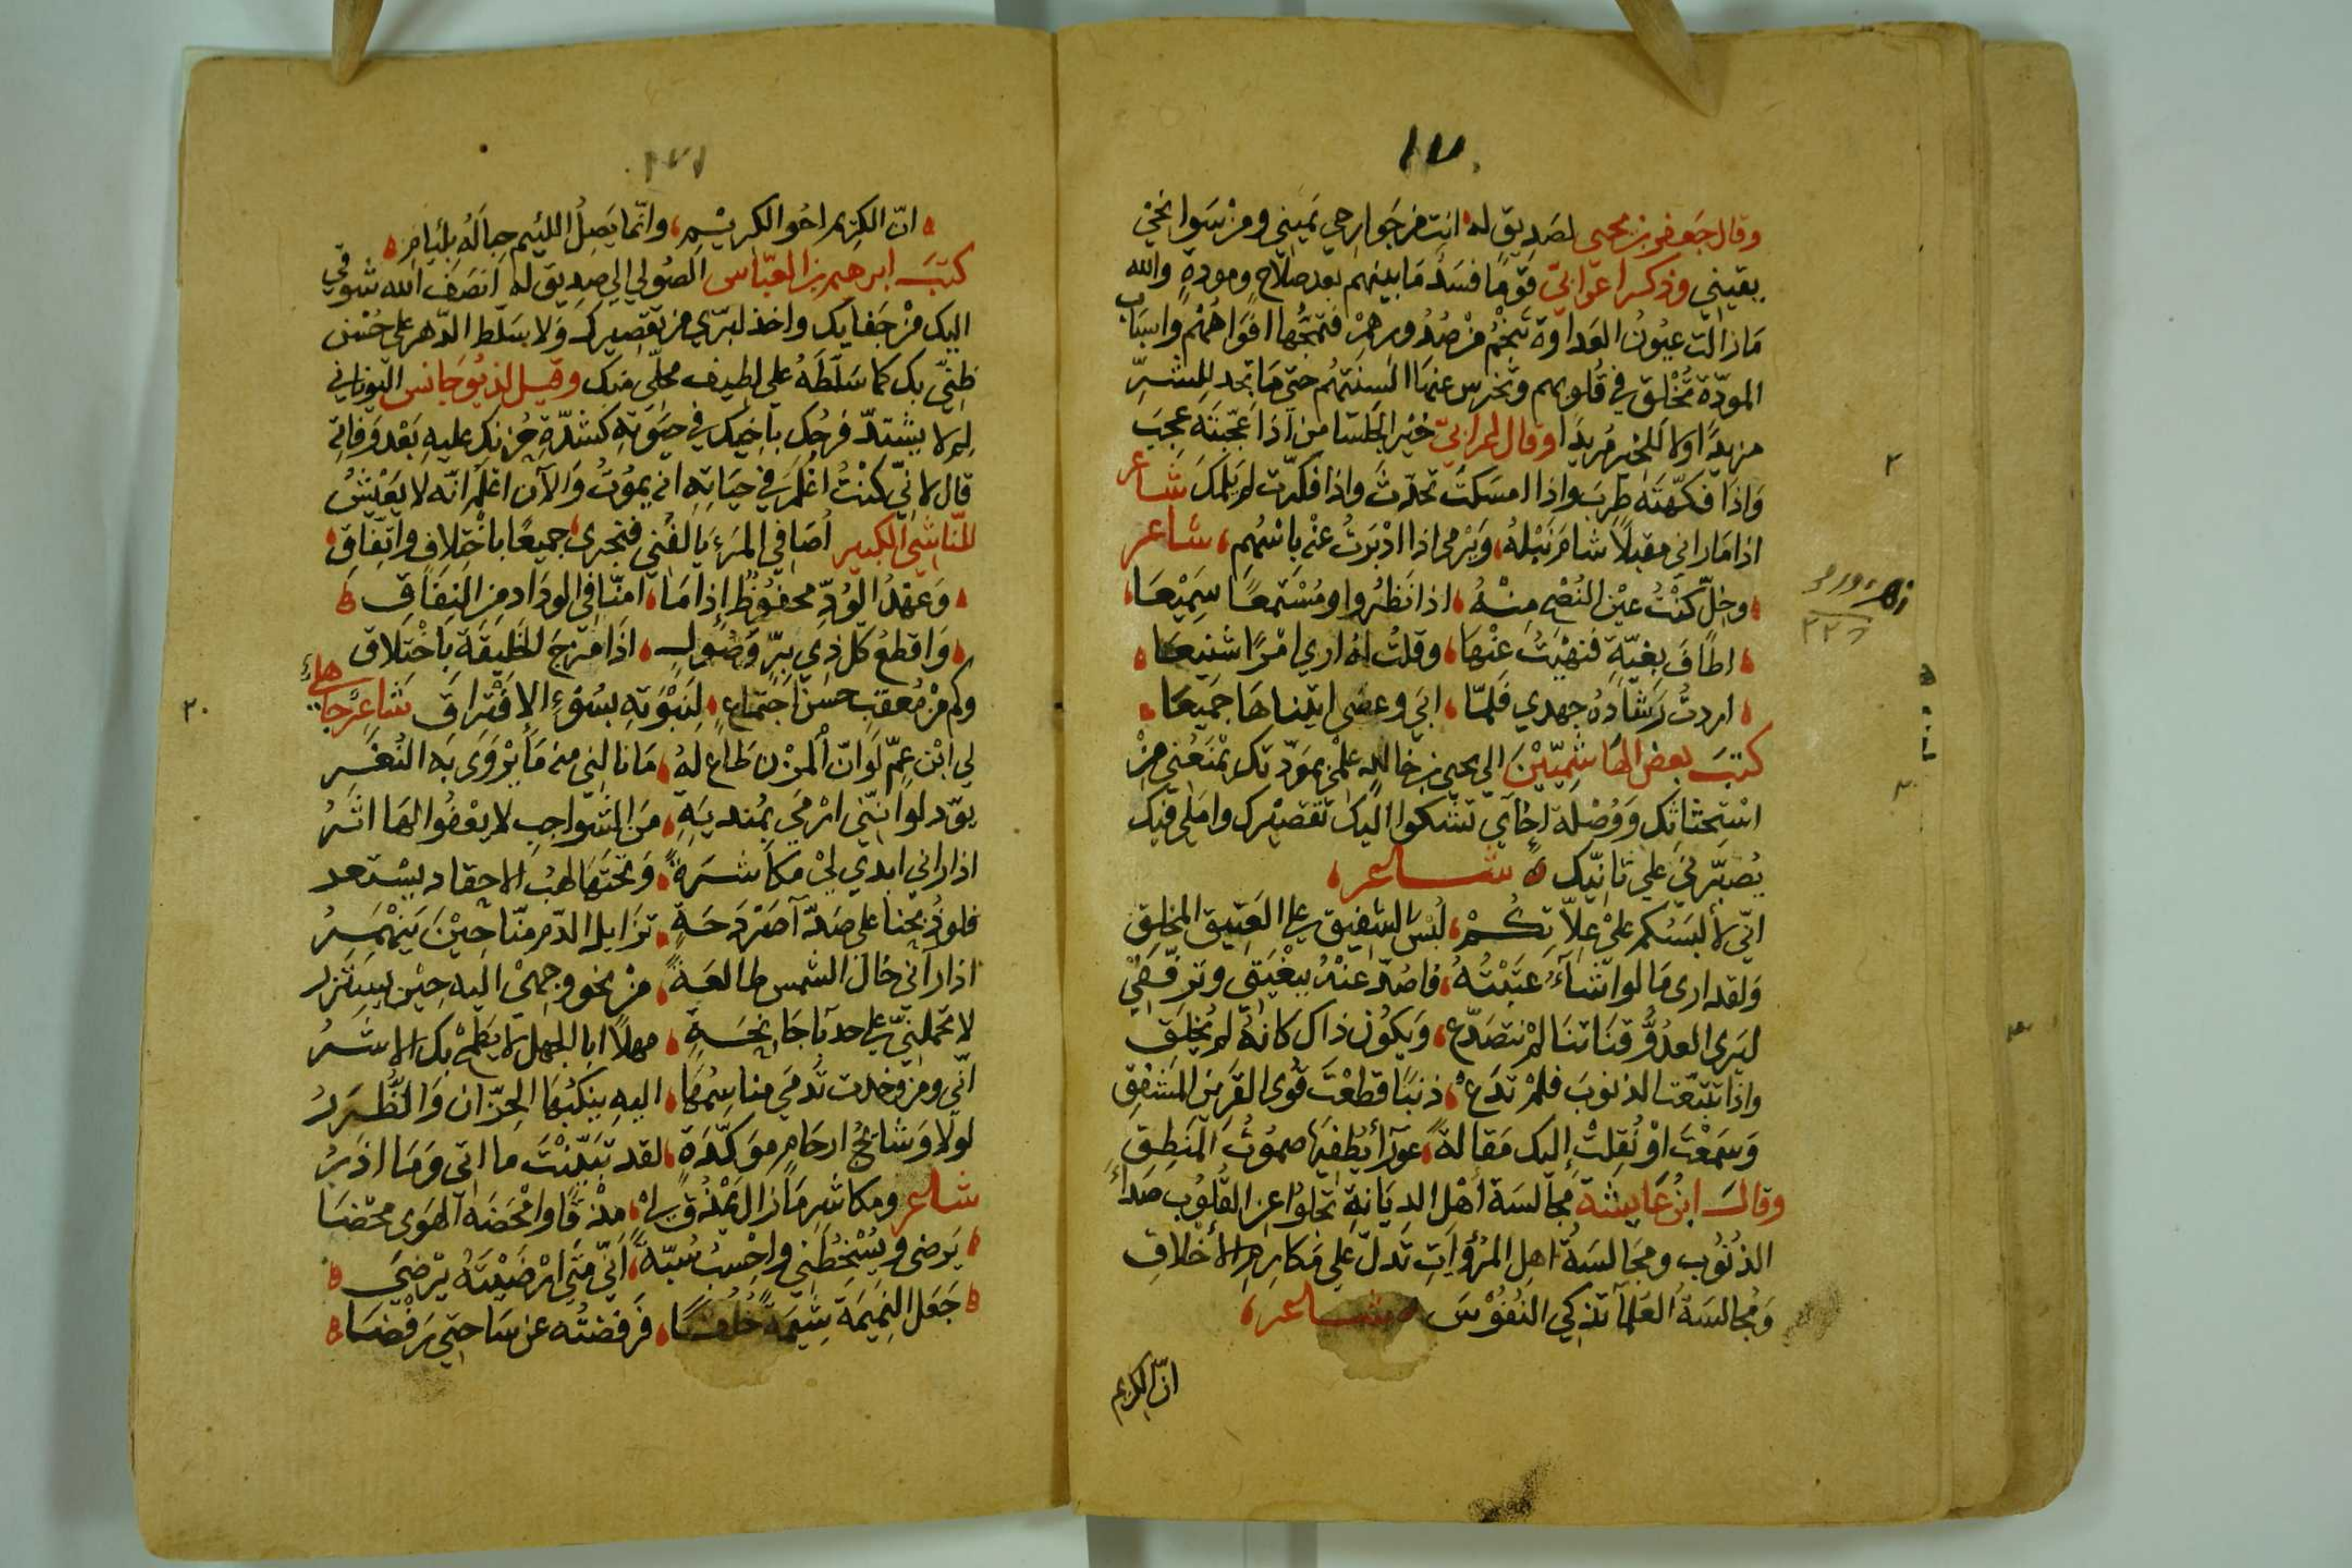 ١٧٠
وقال جعفر بن يحيى لصديق له انت من جوارحي يميني ومن سوانحي
يقيني وذكر اعرابيّ قومًا فسد ما بينهم بعد صلاح ومودة والله
مازالت عيون العداوة تنجم من صدورهم فتمجّها افواههم واسباب
المودّة تخلق في قلوبهم وتخرس عنها السنتهم حتى ما تجد للشرّ
مزيدًا ولا للخير مريدًا وقال اعرابيّ خير الجلسا من اذا عجّبته عجب
واذا فكّهته طرب واذا امسكت تحدّث واذا فكّرت لم يلمك شاعر
اذا ما راني مقبلًا شام نبله ويرمي اذا ادبرت عنه باسهم شاعر
وخلّ كنت عين النصح منه اذا نظروا ومستمعًا سميعا
اطاف بغيّة فنهيت عنها وقلت له اري امرًا شنيعا
اردت رشاده جهدي فلمّا ابي وعصى اتيناها جميعا
كتب بعض الهاشميّين الي يحيى بن خالد علمي بمودّتك يمنعني من
استحثاثك ووصلة اخآي تشكوا اليك تقصيرك واملي فيك
يصبّرني علي تانّيك شاعر
انّي لألبسكم علي علّاتكم لبس الشفيق علي العتيق المخلق
ولقد ارى ما لو اشآء عتبته فاصدّ عنه ببغيتي وترفّقي
ليرى العدوّ قناتنا لم تتصدّع ويكون ذاك كانه لم يخلق
واذا تتبّعت الذنوب فلم تدع ذنبًا قطعت قوى القرين المشفق
وسمعت او نقلت إليك مقالة عورآ يطفيها صموت المنطق
وقال ابن عايشة مجالسة اهل الديانة تجلوا عن القلوب صدآء
الذنوب ومجالسة اهل المروات تدلّ علي مكارم الأخلاق
ومجالسة العلمآ تذكي النفوس شاعر
انّ الكريم
١٧١
انّ الكريم اخو الكريم وانّما يصل اللئيم حباله بلئام
كتب ابرهيم بن العبّاس الصولي الي صديق له انصف الله شوقي
اليك من جفايك واخذ لبرّي من تقصيرك ولا سلّط الدّهر علي حسن
ظنّي بك كما سلّطه علي لطيف محلّي منك وقيل لذيوجانس اليوناني
لم لا يشتدّ فرحك باخيك في حيوته كشدّة حزنك عليه بعد وفاته
قال لانّي كنت اعلم في حياته انه يموت والآن اعلم انّه لا يعيش
للنّاشي الكبير اصافي المرء يا الفني فتجرى جميعًا باختلاف واتّفاق
وعهد الودّ محفوظ إذا ما امنّا في الوداد من النفاق
واقطع كل ذي برّ وصول اذا مزج الخليقة باختلاق
وكم من معقب حسن اجتماع لنبوته بسوء الافتراق شاعر جاهلي
لي ابن عمّ لو انّ المزن طاع له ما نالني منه ما يروى به النغر
يودّ لو انّني ارمي بمنديه من الشواجب لا يعفوا لها اثر
اذا راني ابدي لي مكاشرة وتحتها لهب الاحقاد يستعر
فلو ذبحنا علي صدّآ صردحة تزايل الدّم منّا حين ينهمر
اذا رآني خال الشمس طالعة من نحو وجهي اليه حين يبتدر
لا تحملنّي علي حدبا جانحة مهلًا ابا الجهل لا يطمح بك الاشر
انّي ومن وخدت تدمي مناسمها اليه ينكبها الحزّان والظّرر
لولا وشائج ارحام موكّدة لقد تبيّنت ما اتي وما اذر
شاعر ومكاشر ما زال يمذق لي مذقًا وامحضه الهوى محضا
يرضى ويسخطني واحسب سبّة انّي متى ارضيته يرضي
جعل النميمة شيمة خلقًا فرفضته عن ساحتي رفضا